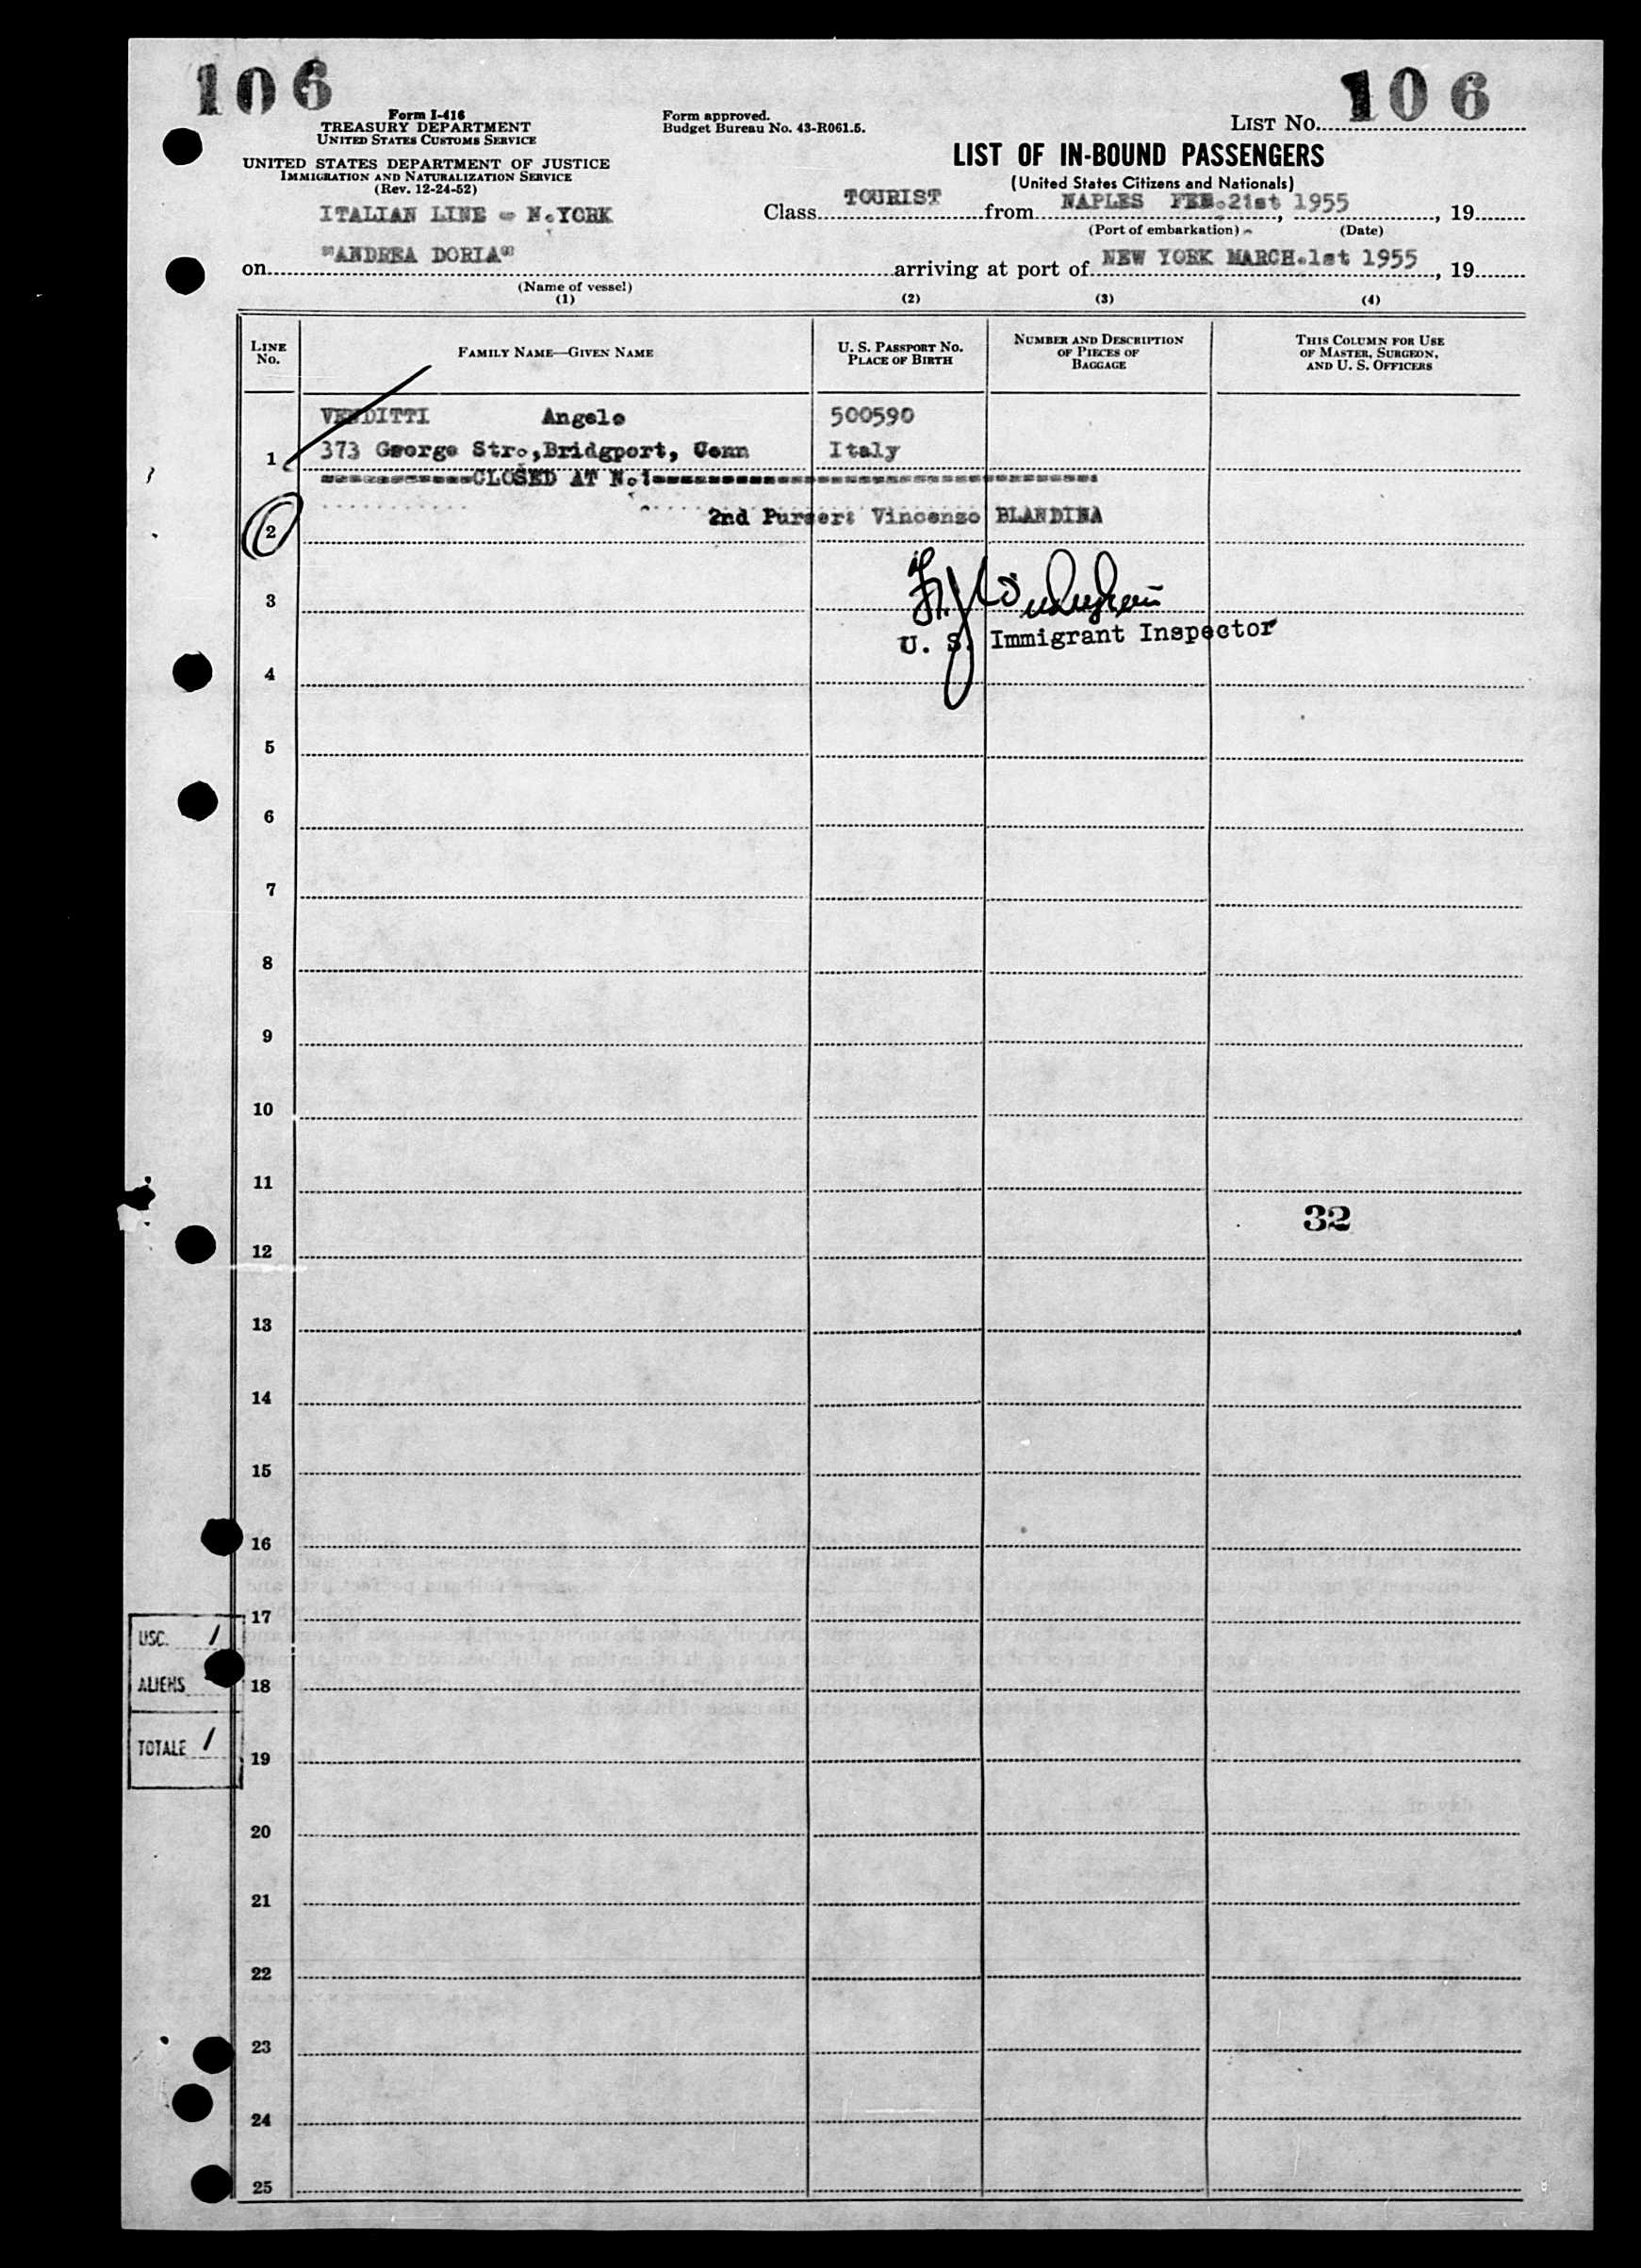 106
106
Form I-416
TREASURY DEPARTMENT
UNITED STATES CUSTOMS SERVICE
Form approved.
Budget Bureau No. 43-R061.5.
LIST No.
UNITED STATES DEPARTMENT OF JUSTICE
IMMIGRATION AND NATURALIZATION SERVICE
(Rev. 12-24-52)
LIST OF IN-BOUND PASSENGERS
(United States Citizens and Nationals)
ITALIAN LINE - N.YORK
Class TOURIST from NAPLES FEB.21st, 1955, 19
(Port of embarkation) (Date)
on "ANDREA DORIA" arriving at port of NEW YORK MARCH.1st 1955, 19
(Name of vessel)
(1) (2) (3) (4)
LINE No. FAMILY NAME—GIVEN NAME U. S. PASSPORT No. PLACE OF BIRTH NUMBER AND DESCRIPTION OF PIECES OF BAGGAGE THIS COLUMN FOR USE OF MASTER, SURGEON, AND U. S. OFFICERS
VENDITTI Angelo 500590
1 373 George Str.,Bridgport, Conn Italy
CLOSED AT N.1
2nd Purser: Vincenzo BLANDINA
2
3
U. S. Immigrant Inspector
4
5
6
7
8
9
10
11
32
12
13
14
15
16
17
USC. 1
ALIENS
18
TOTALE 1
19
20
21
22
23
24
25